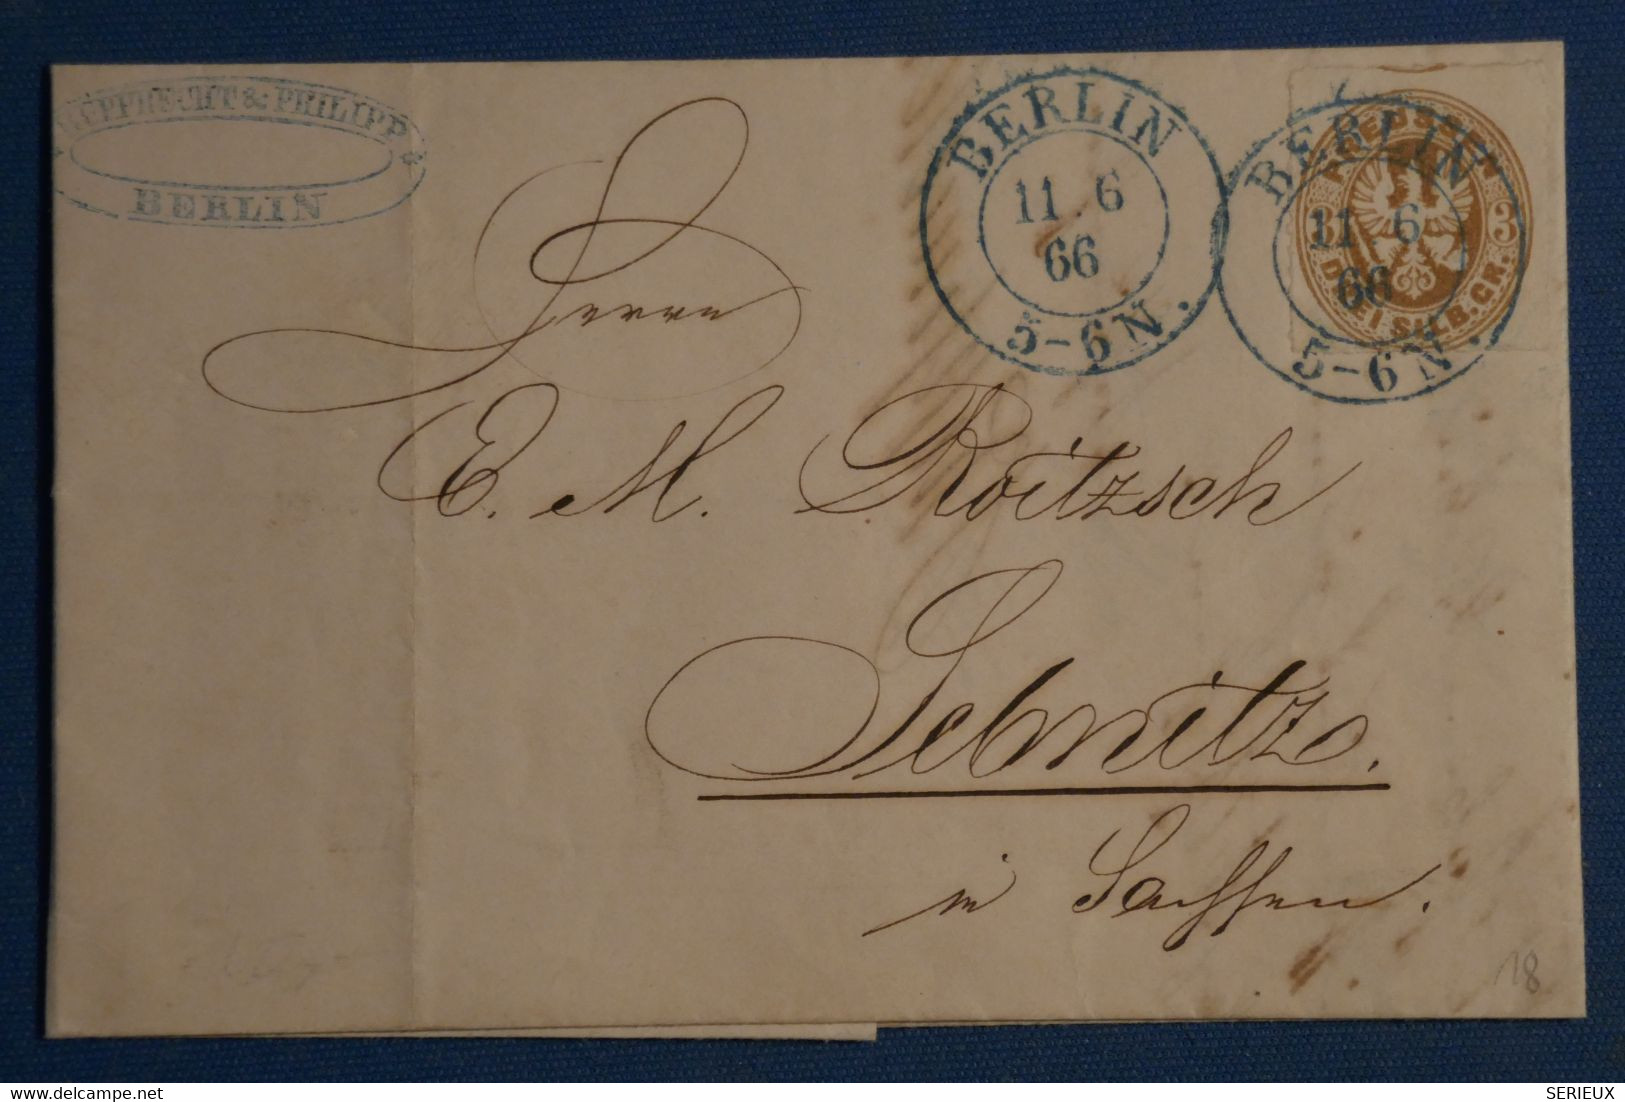 RUPPRECHT & PHILIPP
BERLIN
BERLIN
11 . 6
66
5-6 N.
BERLIN
11 6
66
5-6 N.
PREUSSEN
3 3
DREI SILB. GR.
Herrn
E. M. Roitzsch
Sebnitz.
in Sachsen.
18
delcampe.net
SERIEUX